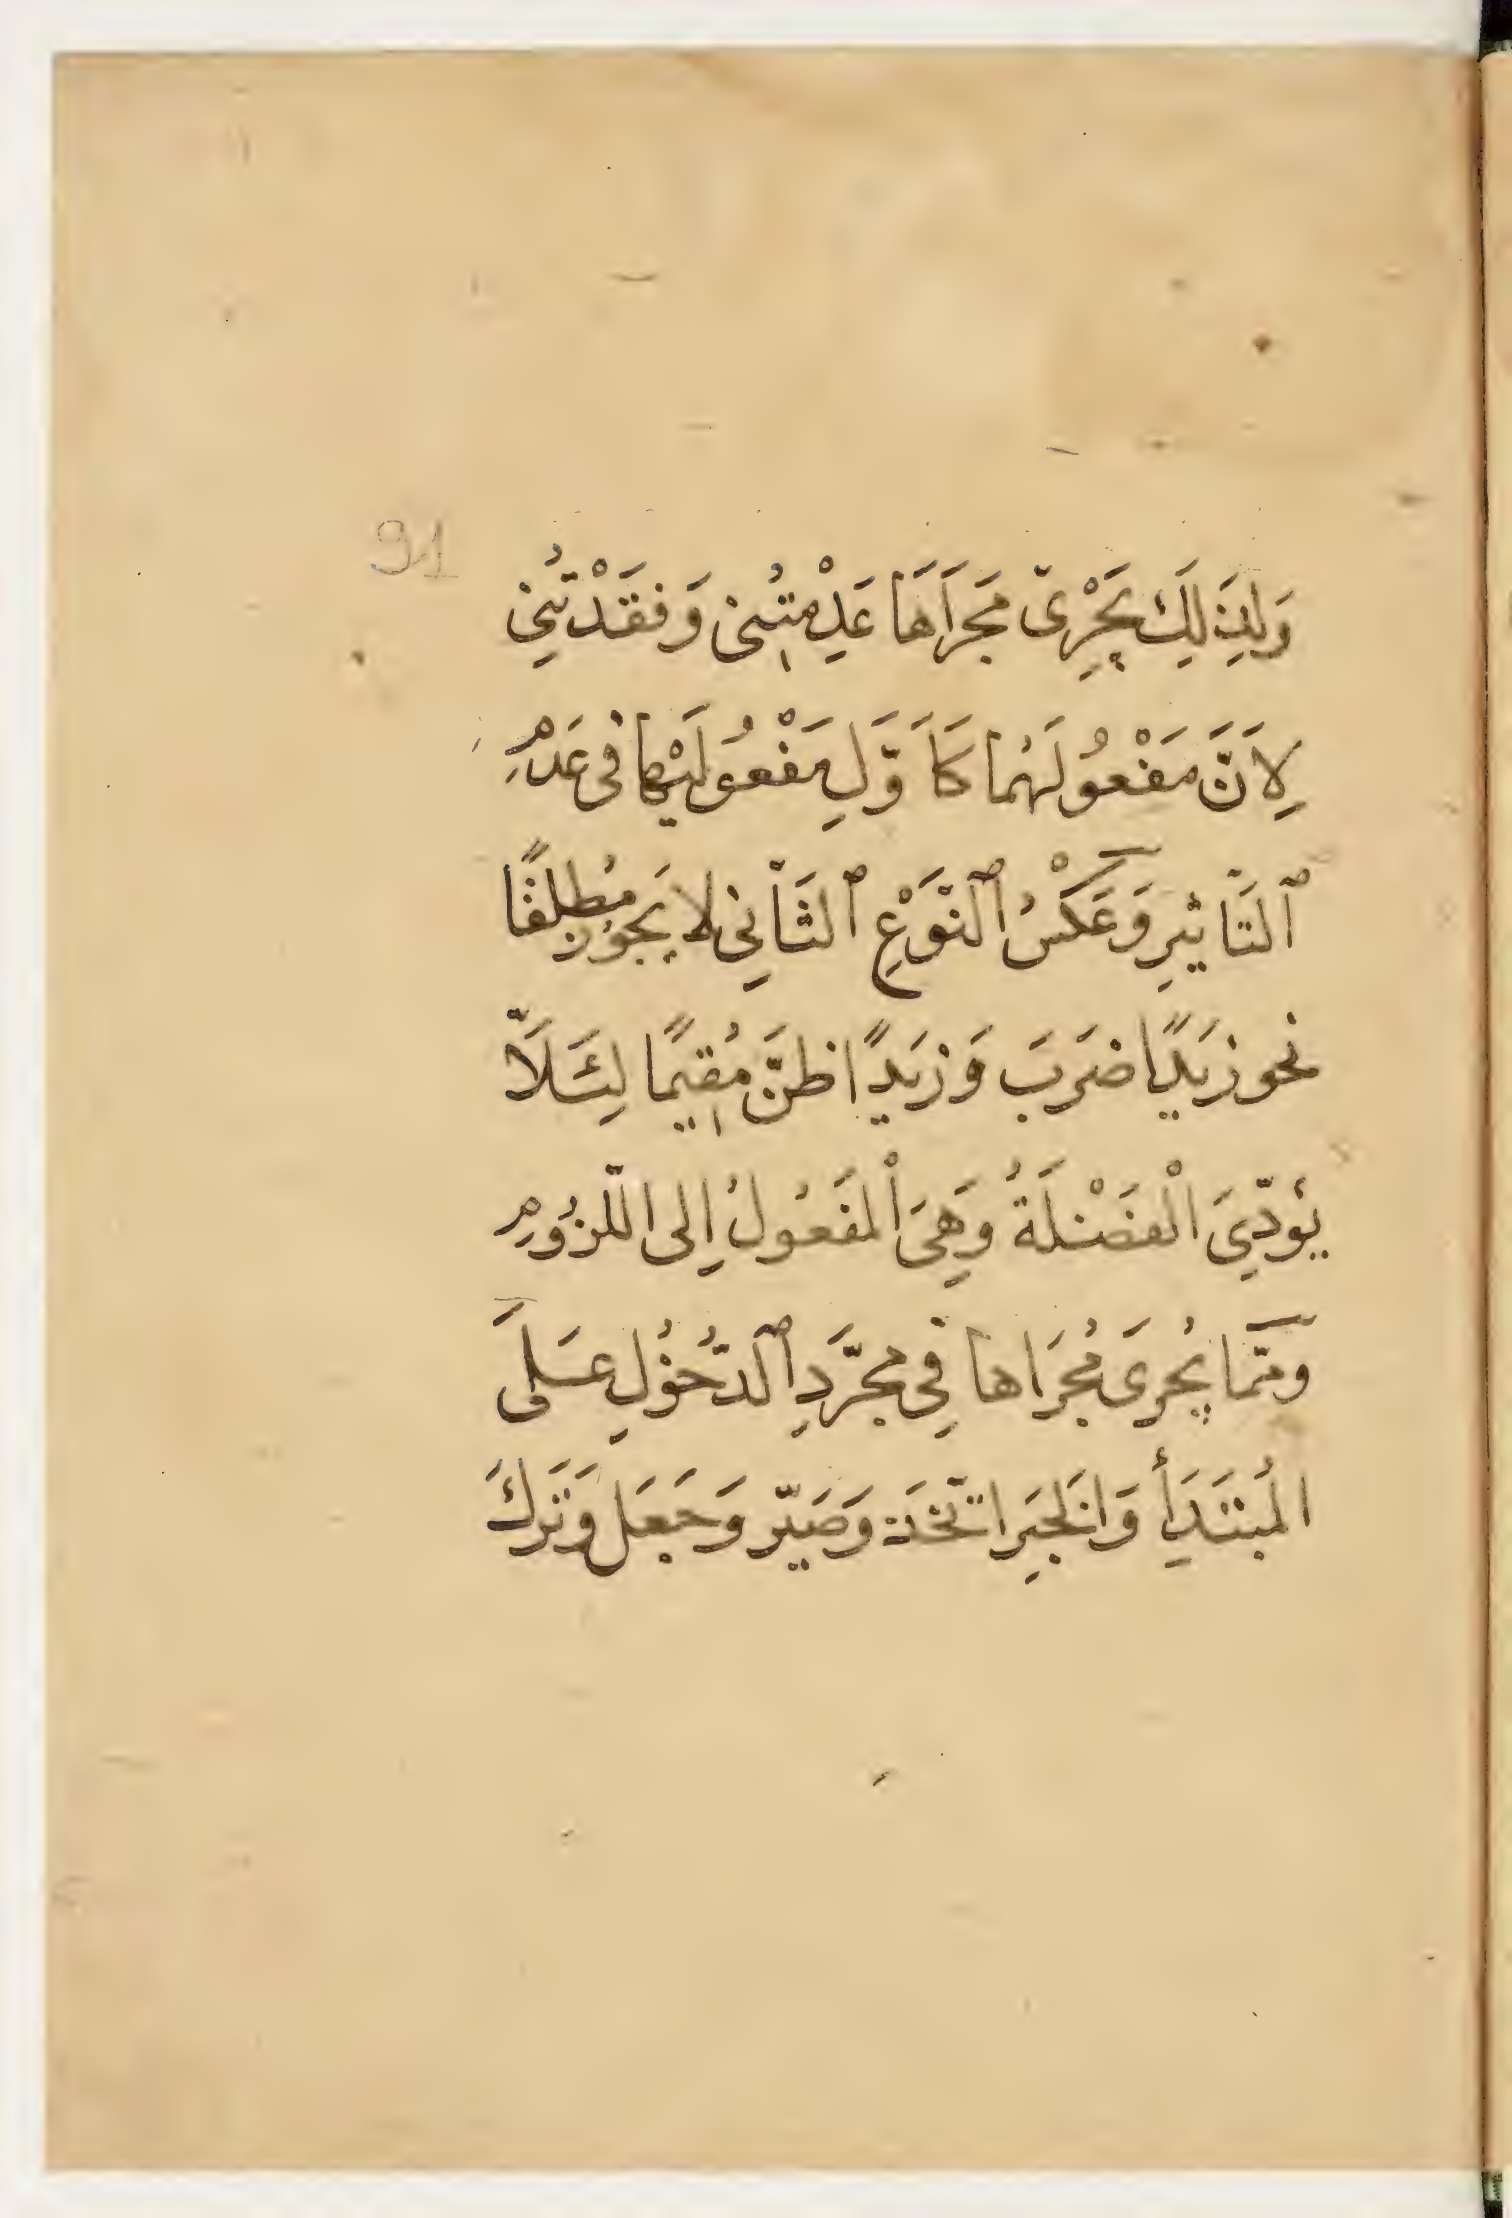 91
وَلِذَلِكَ يَجْرِىّ مَجَرَاهَا عَدِمْتُنِى وَفَقَدْتُنِي
لِاَنَّ مَفْعُولَهُما كَاَوَّلِ مَفْعُولَيْهِما فى عَدَمِ
ٱلتَّاثيرِ وَعَكْسُ ٱلنَّوْعِ ٱلثَّانِي لا يَجُوزُ مُطلقًا
نحو زيَدًا ضَرَبَ وَزيَدًا ظنَّ مُقِيمًا لِئَلَاّ
يُؤدّيَ الْفَضْلَةُ وَهِىَ الْمَفَعُولُ إِلى اللّزُومِ
وممَّا يُجرَى مُجرَاها فِى مجرَّدِ ٱلدُّخُولِ عَلىَ
المُبتَدَأِ وَالخَبَرِ اتّخَذ وَصَيّر وَجَعَل وَتَرَكَ